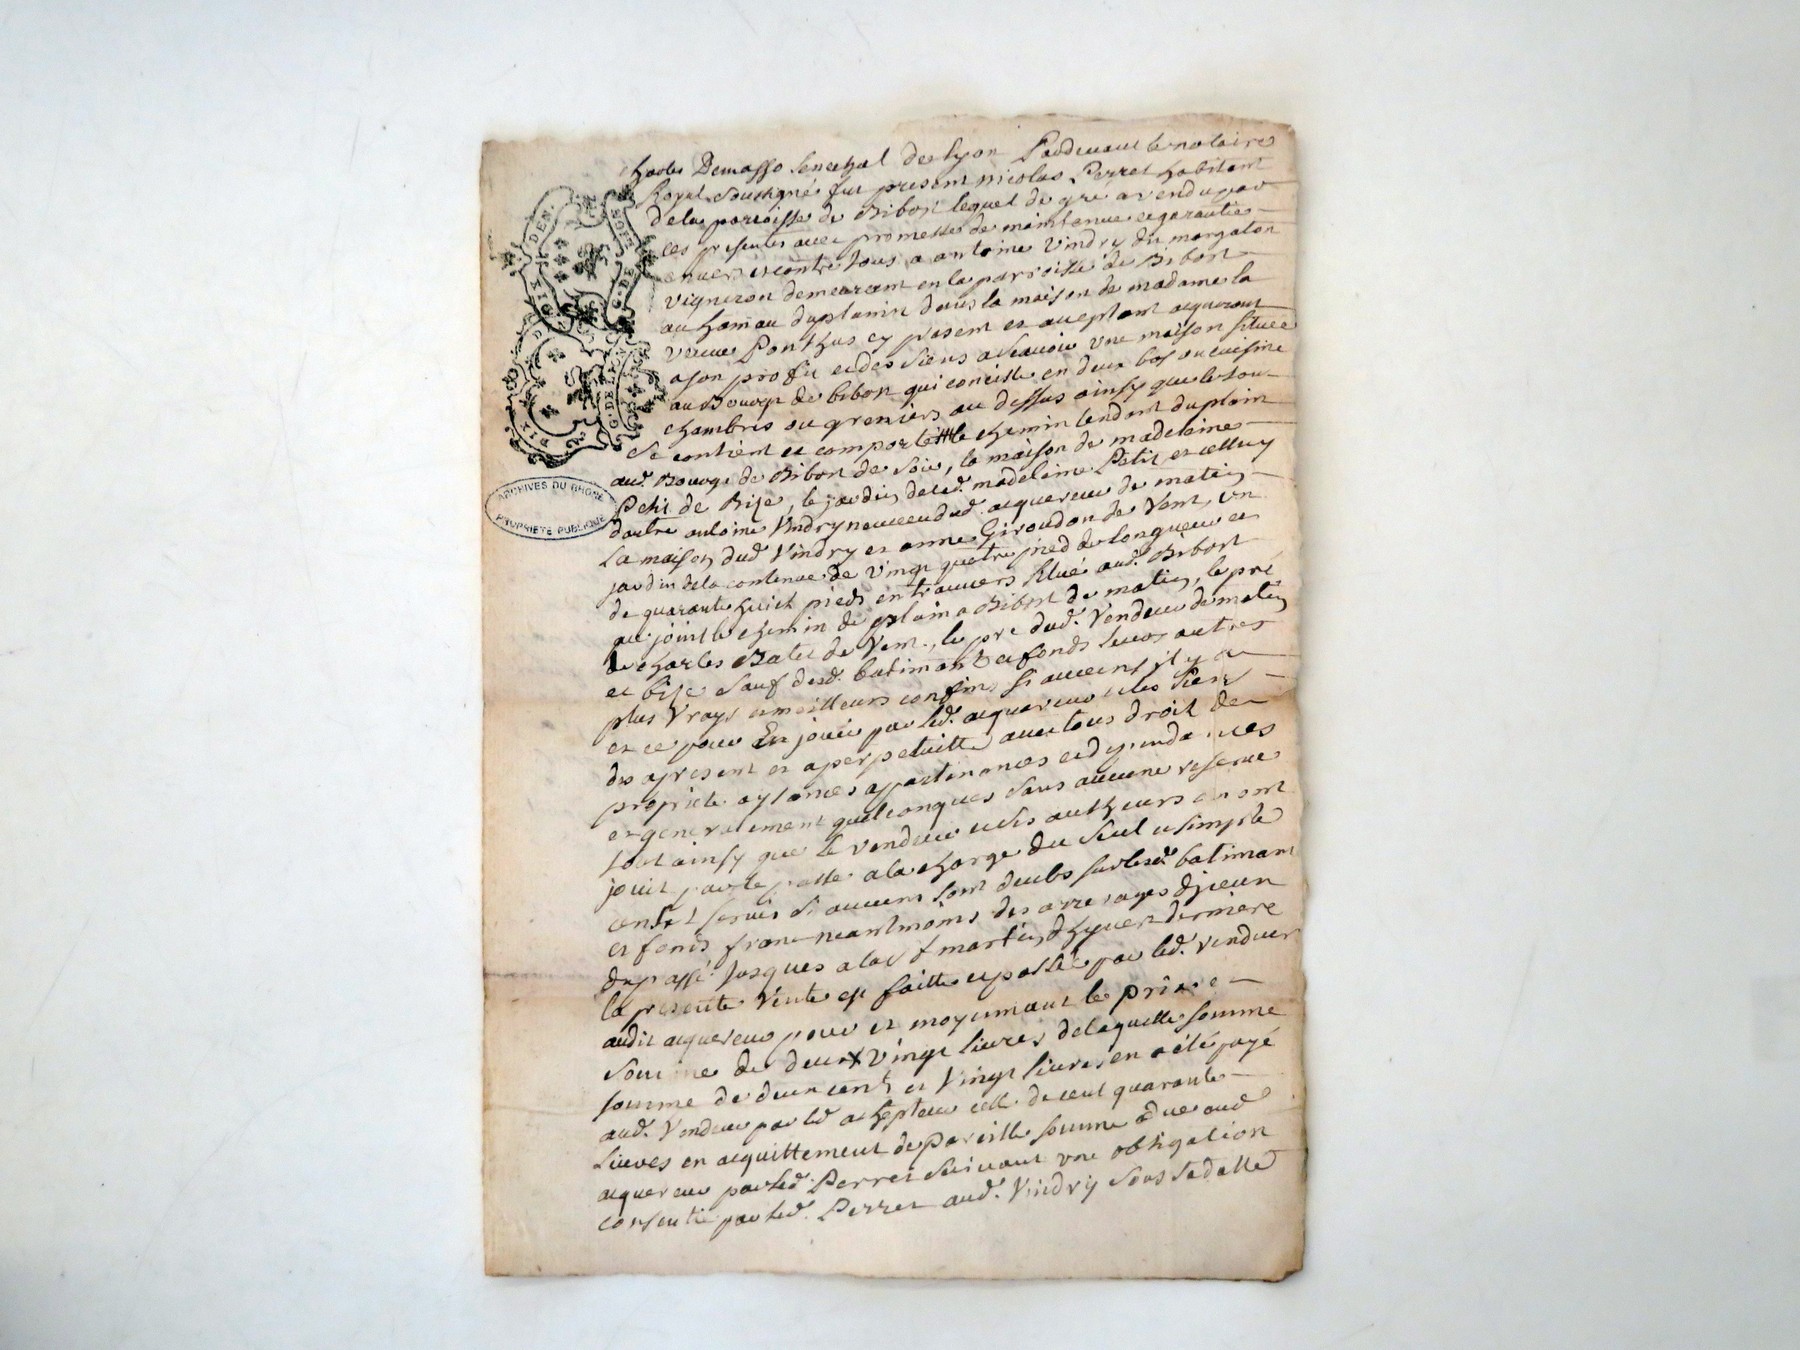 charles Demasso senechal de lyon Pardevant le notaire
Royal soussigné fut present nicolas Perret habitant
dela parroisse de Bibost lequel de gré a vendu par
ces presentes avec promesse de maintenue et garantie
envers et contre tous a antoine Vindry du morgaton
vigneron demeurant en la parroisse de Bibost
au hameau duplanin dans la maison de madame la
veuve Ponthus cy present et aceptant aquereur
a son profit et des siens a scavoir une maison située
au Bourg de bibost qui conciste en deux bas ou cuisine
chambres ou greniers au dessus ainsy que le tou
se contient et comporte le chemin tendant duplain
aud. Bourg de Bibost de soir, la maison de madelaine
Petit de Bize, le jardin de lad. madelaine Petit et celluy
dautre antoine Vindry neuveu dud. aquereur de matin
La maison dud Vindry et anne Giroudon de Vent, un
jardin dela contenue de vingt quatre pied de longueur et
de quarante huict pieds en travvers situé aud. Bibost
qui joint le chemin de plain a Bibost de matin, le pré
de charles Batet de Vent, le pré dud. Vendeur de matin
et bize sauf desd. batimant et fonds leurs autres
plus vrays et meilleurs confins si aucuns il y a
et ce pour En jouir par led. aquereur et les siens
des apresent et a perpetuitté avec tous droit de
propriete aysances appartenances et dependances
et generalement quelconques sans aucune reserve
tout ainsy que le vendeur et ses autheurs en ont
jouit par le passé a la charge du seul et simple
cens et servis si aucuns sont deubs sur lesd. batimant
et fonds franc neantmoins des arrerages dyceux
du passé jusques a la st martin dhyver derniere
la presente Vente est faitte et passée par led. vendeur
audit aquereur pour et moyennant le prix et
somme de deux vingt livres de laquelle somme
somme de deux cents et vingt livres en a été payé
aud. Vendeur par led achepteur celle de cent quarante
Livres en acquittement de pareille somme a due aud
aquereur par led. Perret suivant une obligation
consentie par led. Perret aud. Vindry sous sa datte
DEN.
DIX
G. DE LION
DIX
ARCHIVES DU RHÔNE
PROPRIÉTÉ PUBLIQUE